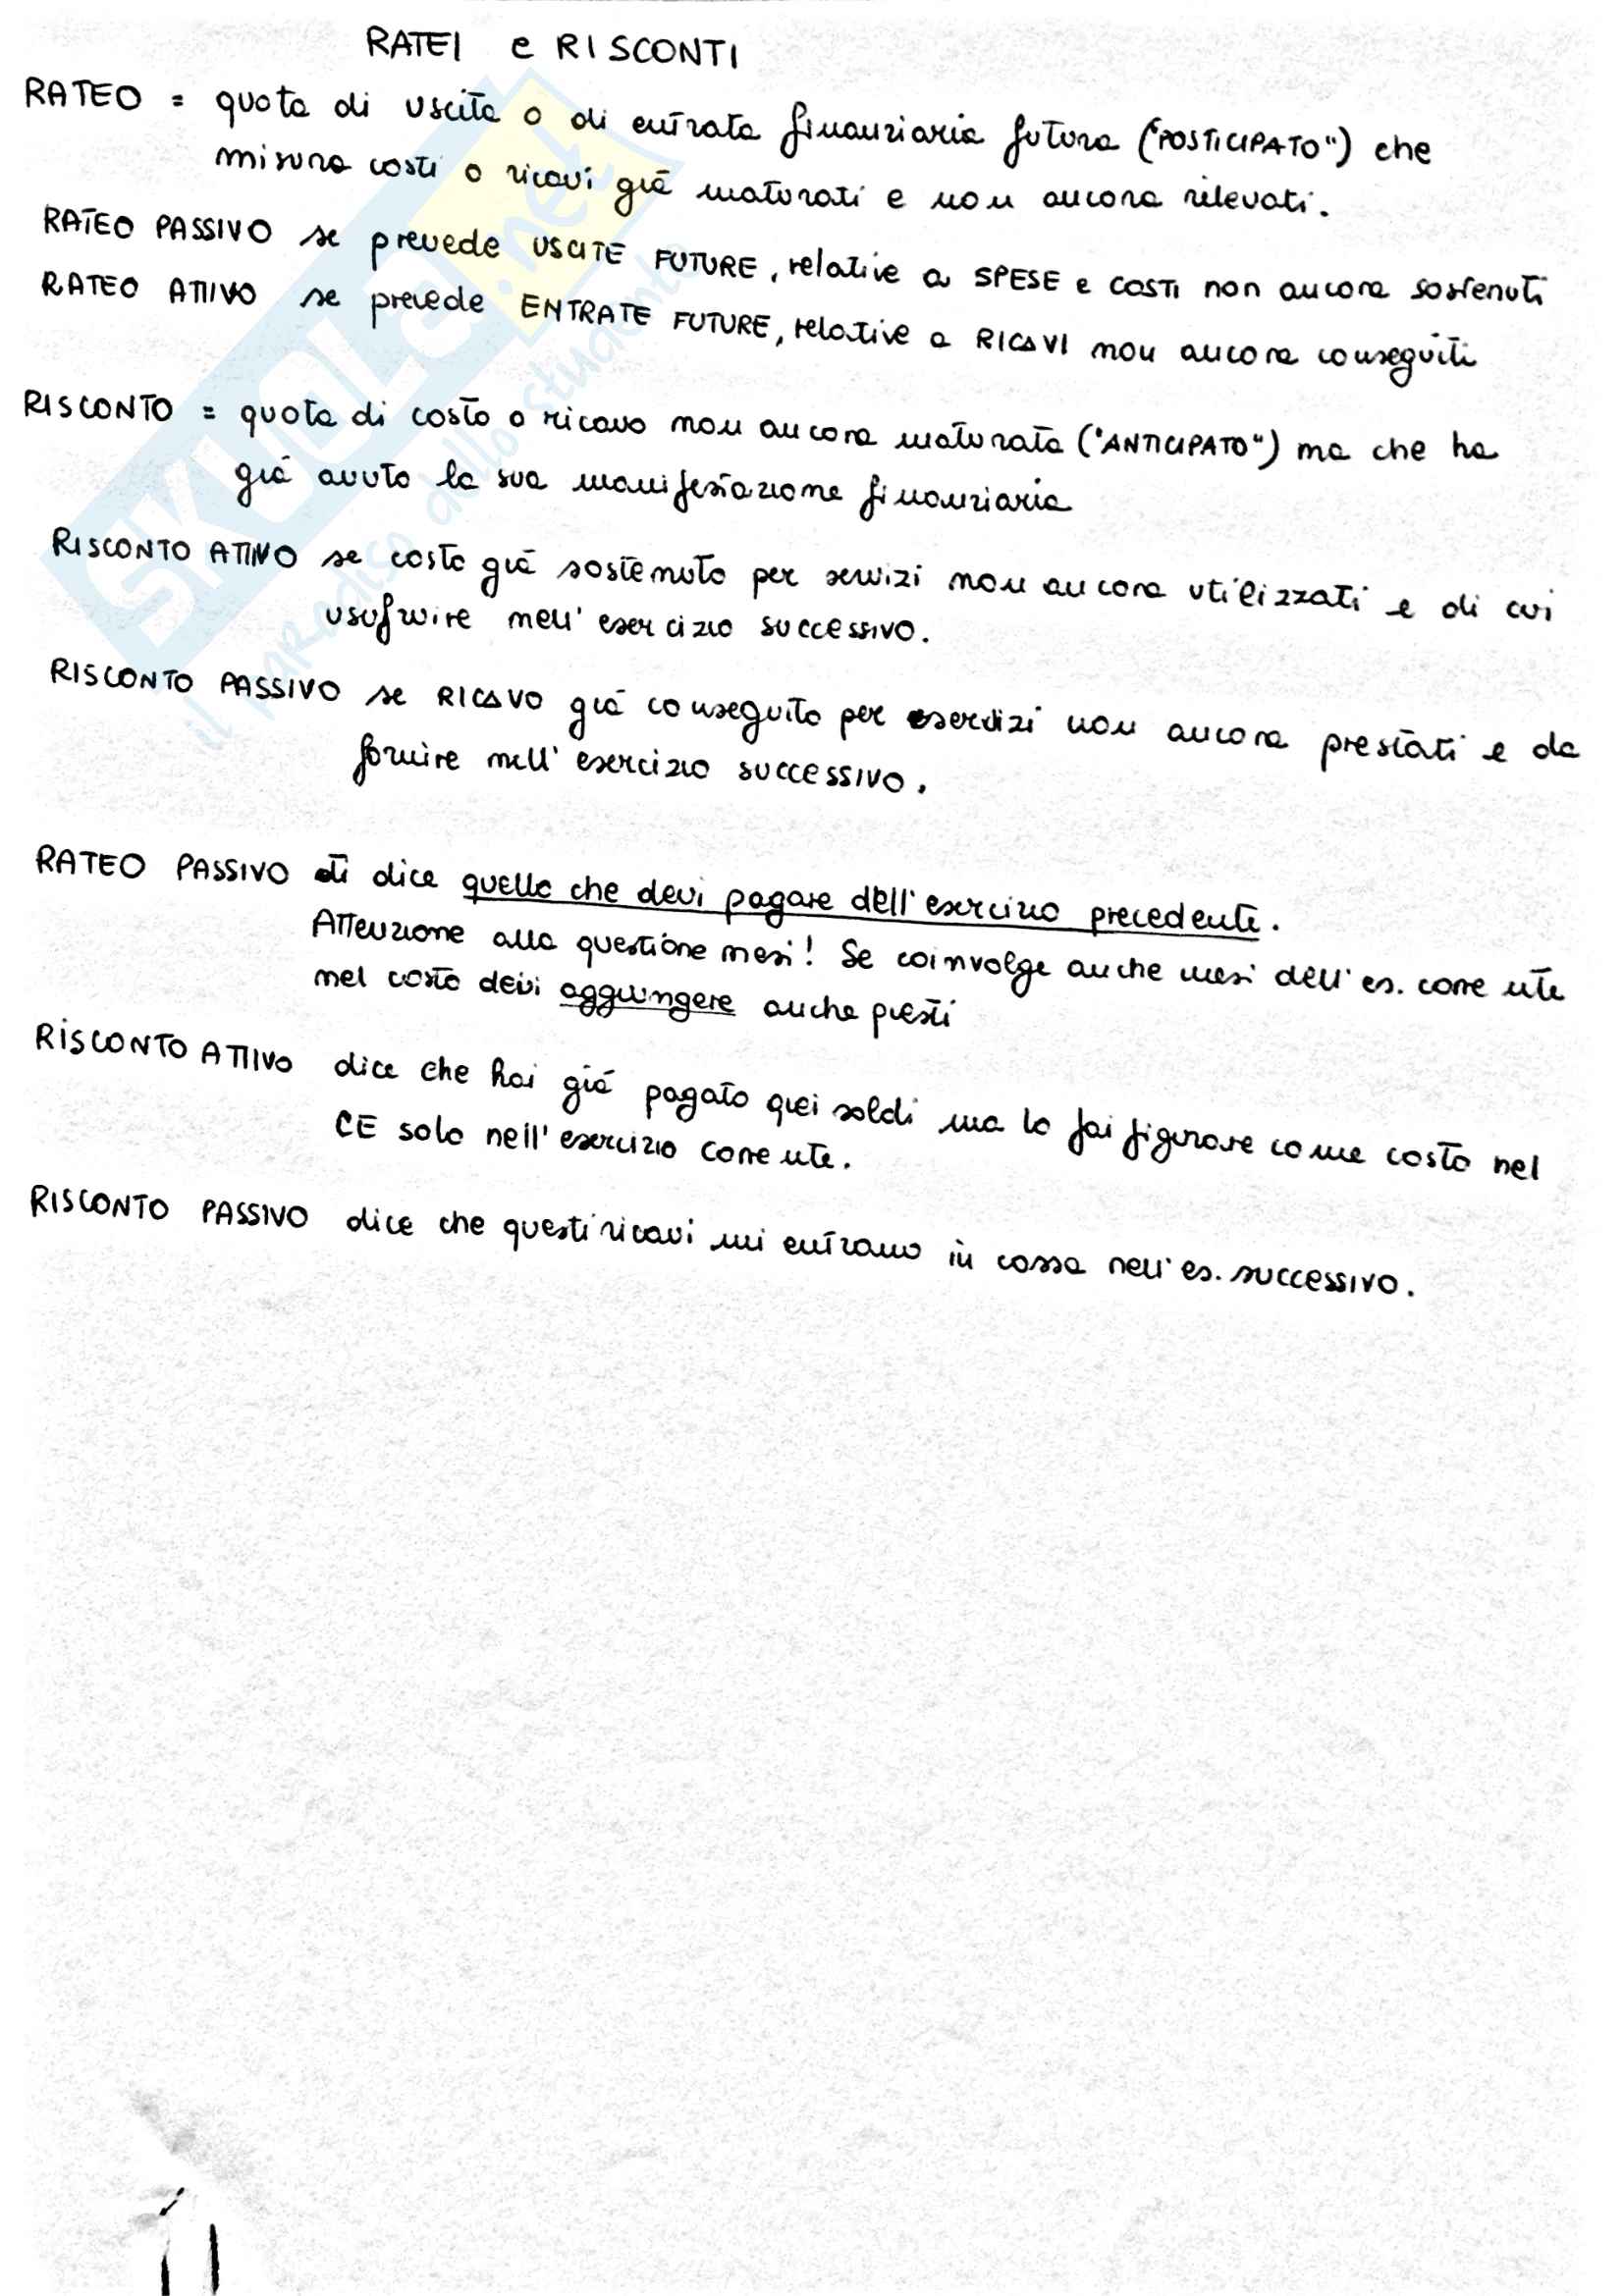 RATEI e RISCONTI
RATEO = quota di uscita o di entrata finanziaria futura ("POSTICIPATO") che
misura costi o ricavi già maturati e non ancora rilevati.
RATEO PASSIVO se prevede USCITE FUTURE, relative a SPESE e COSTI non ancora sostenuti
RATEO ATTIVO se prevede ENTRATE FUTURE, relative a RICAVI non ancora conseguiti
RISCONTO = quota di costo o ricavo non ancora maturata ("ANTICIPATO") ma che ha
già avuto la sua manifestazione finanziaria
RISCONTO ATTIVO se costo già sostenuto per servizi non ancora utilizzati e di cui
usufruire nell'esercizio successivo.
RISCONTO PASSIVO se RICAVO già conseguito per esercizi non ancora prestati e da
fornire nell'esercizio successivo.
RATEO PASSIVO ti dice quello che devi pagare dell'esercizio precedente.
Attenzione alla questione mesi! Se coinvolge anche mesi dell'es. corrente
nel costo devi aggiungere anche questi
RISCONTO ATTIVO dice che hai già pagato quei soldi ma lo fai figurare come costo nel
CE solo nell'esercizio corrente.
RISCONTO PASSIVO dice che questi ricavi mi entrano in cassa nell'es. successivo.
SKUOLA.net
il paradiso dello studente